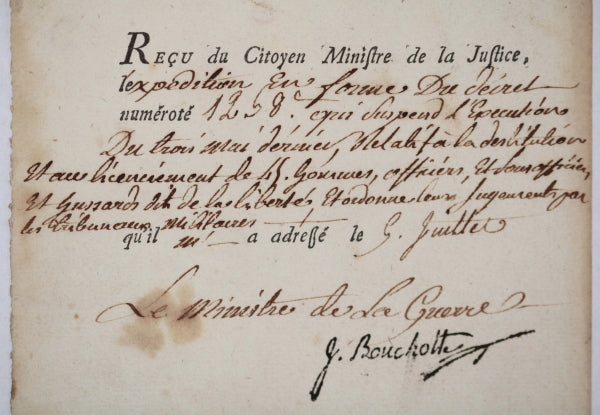 REÇU du Citoyen Ministre de la Justice,
l'expedition En forme Du décret
numéroté 1258. qui Suspend l'Execution
Du trois mai dernier, Relatif à la destitution
Et au licenciement de 45. hommes, officiers, Et sous officiers,
Et hussards dit de la liberté, Et ordonne leurs Jugements par
les tribunaux militaires
qu'il m' a adressé le 5. Juillet
Le Ministre de La Guerre
J. Bouchotte